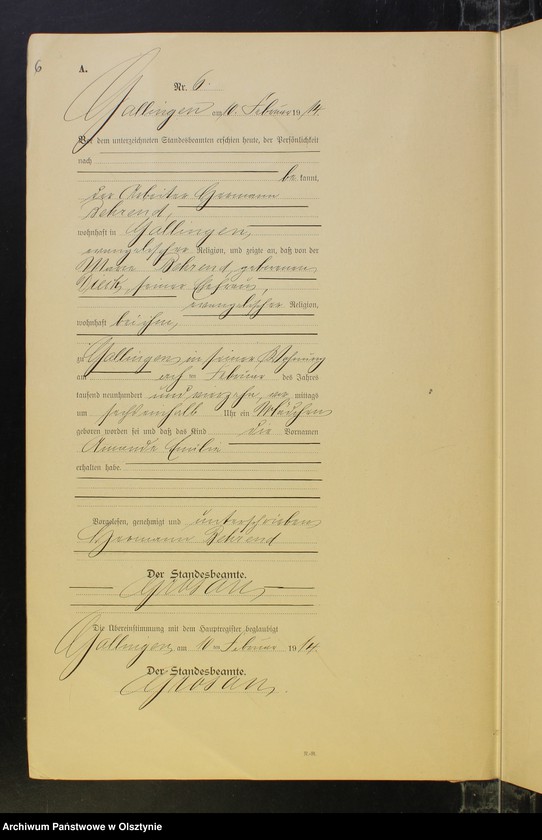 6
A.
Nr. 6.
Gallingen am 10. Februar 1914.
Vor dem unterzeichneten Standesbeamten erschien heute, der Persönlichkeit
nach
be kannt,
der Arbeiter Hermann
Behrend,
wohnhaft in Gallingen,
evangelischer Religion, und zeigte an, daß von der
Behrend geborenen
seiner Ehefrau,
evangelischer Religion,
wohnhaft bei ihm,
zu Gallingen in seiner Wohnung
am Februar des Jahres
tausend neunhundert und vierzehn, vor mittags
um Uhr ein Mädchen
geboren worden sei und daß das Kind die Vornamen
Amande Emilie
erhalten habe.
Vorgelesen, genehmigt und unterschrieben
Hermann Behrend
Der Standesbeamte.
Die Übereinstimmung mit dem Hauptregister beglaubigt
Gallingen am 10 Februar 1914.
Der Standesbeamte.
Archiwum Państwowe w Olsztynie